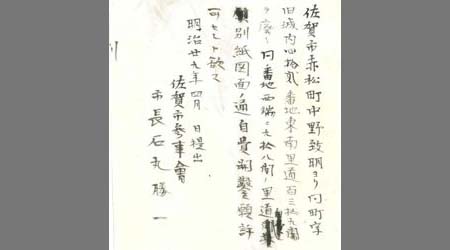 佐賀市赤松町中野致明ヨリ同町字
旧城内四拾弐番地東南里道百三拾九間
ヲ廃シ同番地西端ニ七拾八間ノ里道
別紙図面ノ通自費開鑿願許
可セント欲ス
明治廿九年四月 日提出
佐賀市参事会
市長石丸勝一